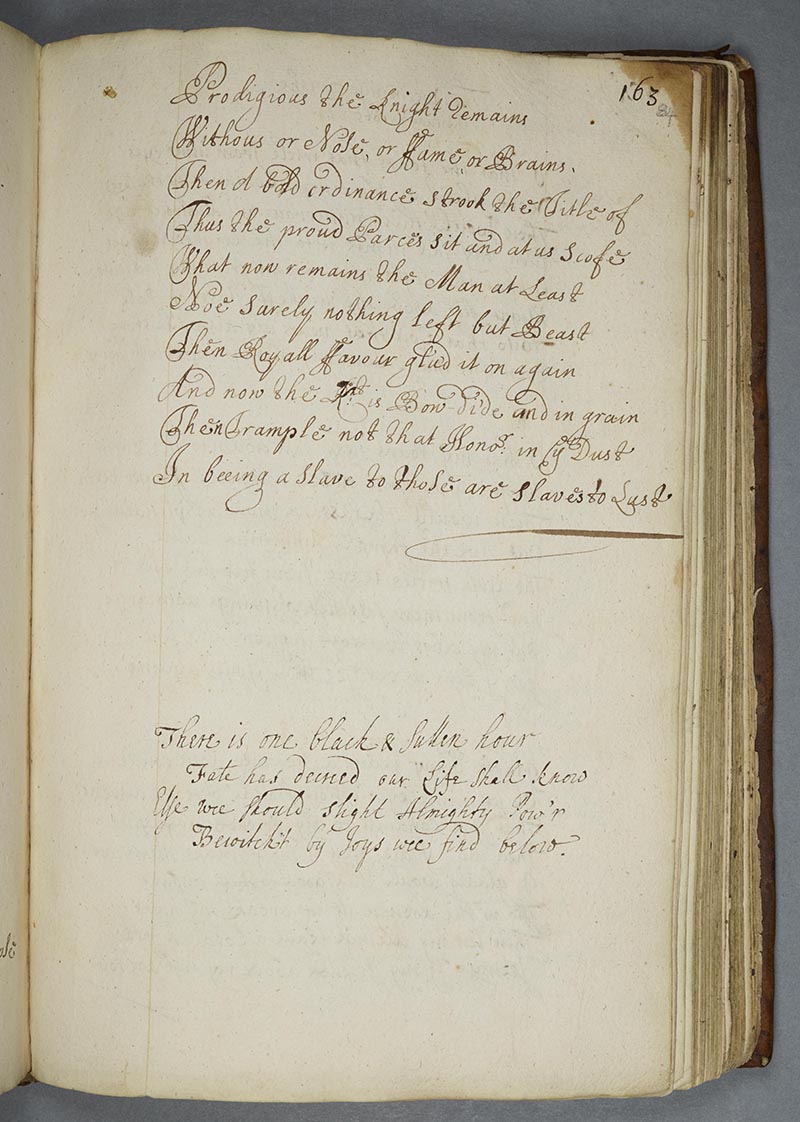 163
84
Prodigious the Knight remains
Withous or Nose, or ffame, or Brains.
Then bold ordinance strook the Title of
Thus the proud Parces sit and at us scofe
What now remains the Man at Least
Noe surely nothing left but Beast
Then Royall ffavour glued it on again
And now the Knt is Bow-dide and in grain
Then Trample not that Honor. in ye Dust
In beeing a slave to those are slaves to Lust
There is one black & sullen hour
Fate has decreed our Life shall know
Else wee should slight Almighty Pow'r
Bewitch't by Joys wee find below.